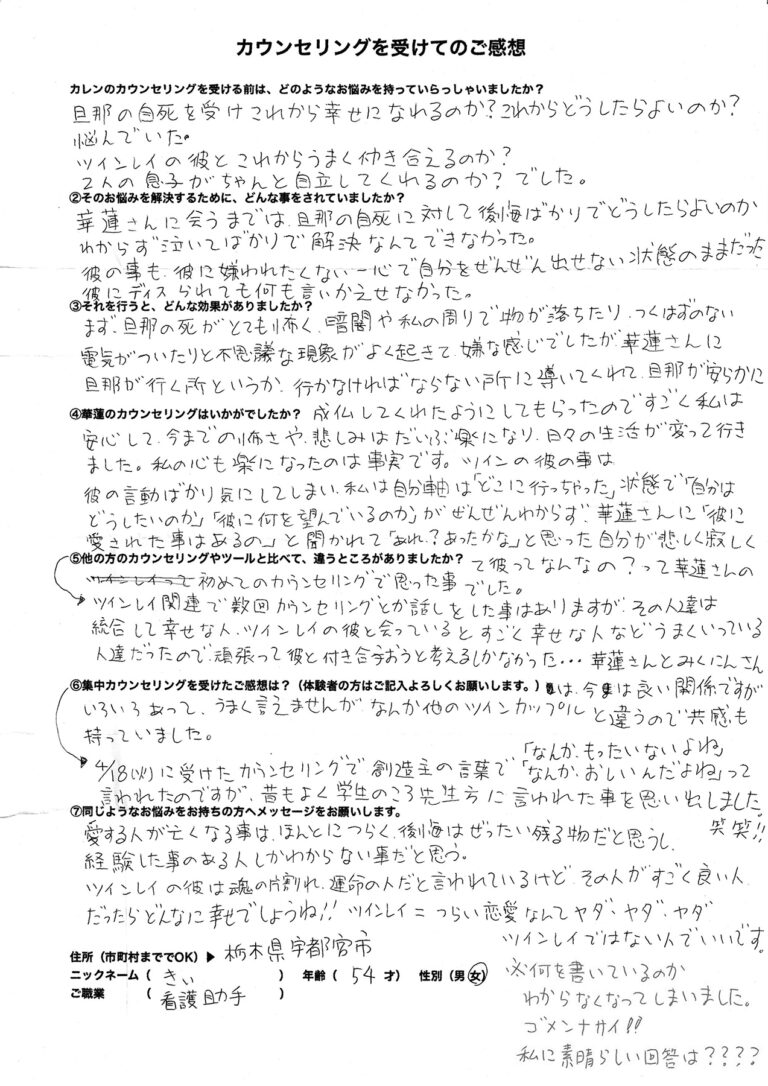 カウンセリングを受けてのご感想
カレンのカウンセリングを受ける前は、どのようなお悩みを持っていらっしゃいましたか？
旦那の自死を受けこれから幸せになれるのか？これからどうしたらよいのか？
悩んでいた。
ツインレイの彼とこれからうまく付き合えるのか？
2人の息子がちゃんと自立してくれるのか？でした。
②そのお悩みを解決するために、どんな事をされていましたか？
華蓮さんに会うまでは、旦那の自死に対して後悔ばかりでどうしたらよいのか
わからず泣いてばかりで解決なんてできなかった。
彼の事も、彼に嫌われたくない一心で自分をぜんぜん出せない状態のままだった
彼にディスられても何も言いかえせなかった。
③それを行うと、どんな効果がありましたか？
まず、旦那の死がとても怖く、暗闇や私の周りで物が落ちたり、つくはずのない
電気がついたりと不思議な現象がよく起きて、嫌な感じでしたが、華蓮さんに
旦那が行く所というか、行かなければならない所に導いてくれて、旦那が安らかに
④華蓮のカウンセリングはいかがでしたか？ 成仏してくれたようにしてもらったのですごく私は
安心して、今までの怖さや、悲しみはだいぶ楽になり、日々の生活が変って行き
ました。私の心も楽になったのは事実です。ツインの彼の事は
彼の言動ばかり気にしてしまい、私は自分軸は「どこに行っちゃった」状態で「自分は
どうしたいのか」「彼に何を望んでいるのか」がぜんぜんわからず、華蓮さんに「彼に
愛された事はあるの〜」と聞かれて「あれ？あったかな」と思った自分が悲しく寂しく
⑤他の方のカウンセリングやツールと比べて、違うところがありましたか？ て彼ってなんなの？って華蓮さんの
ツインレイって初めてのカウンセリングで思った事でした。
ツインレイ関連で数回カウンセリングとか話しをした事はありますが、その人達は
統合して幸せな人、ツインレイの彼と会っているとすごく幸せな人などうまくいっている
人達だったので、頑張って彼と付き合おうと考えるしかなかった…華蓮さんとみくにんさん
⑥集中カウンセリングを受けたご感想は？（体験者の方はご記入よろしくお願いします。） は、今は良い関係ですが
いろいろあって、うまく言えませんがなんか他のツインカップルと違うので共感も
持っていました。
「なんか、もったいないよね」
4/18(火)に受けたカウンセリングで創造主の言葉で「なんか、おしいんだよね」って
言われたのですが、昔もよく学生のころ先生方に言われた事を思い出しました。
笑笑!!
⑦同じようなお悩みをお持ちの方へメッセージをお願いします。
愛する人が亡くなる事は、ほんとにつらく、後悔はぜったい残る物だと思うし、
経験した事のある人しかわからない事だと思う。
ツインレイの彼は魂の片割れ、運命の人だと言われているけど、その人がすごく良い人
だったらどんなに幸せでしょうね!! ツインレイ＝つらい恋愛なんてヤダ・ヤダ・ヤダ
ツインレイではない人でいいです。
住所（市町村まででOK）▶ 栃木県宇都宮市
ニックネーム（ きぃ ） 年齢（ 54 才） 性別（男 女）
ご職業 （ 看護助手 ）
※何を書いているのか
わからなくなってしまいました。
ゴメンナサイ!!
私に素晴らしい回答は？？？？